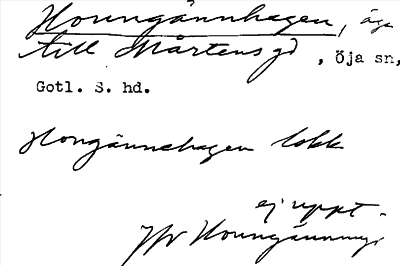 Hourgännhagen, äga
till Mårtens gd, Öja sn,
Gotl. S. hd.
Hongännehagen lokk
ej uppt.
Jfr Hourgännmyr